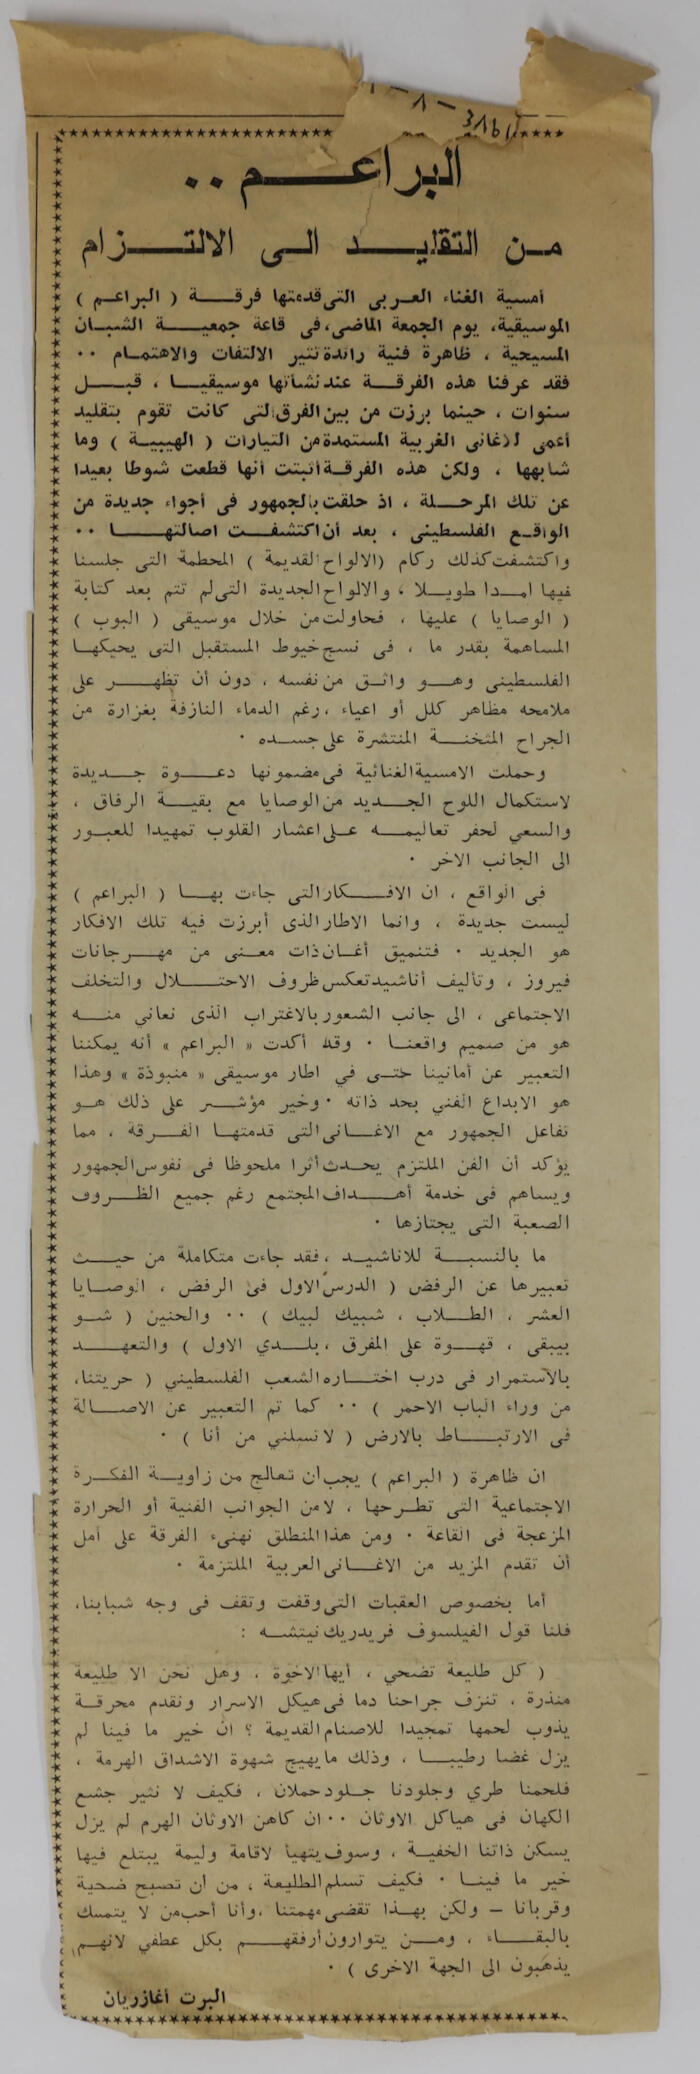 البراعم ..
من التقليد الى الالتزام
أمسية الغناء العربى التى قدمتها فرقة ( البراعم )
الموسيقية، يوم الجمعة الماضى، فى قاعة جمعية الشبان
المسيحية ، ظاهرة فنية رائدة تثير الالتفات والاهتمام ..
فقد عرفنا هذه الفرقة عند نشأتها موسيقيا ، قبل
سنوات ، حينما برزت من بين الفرق التى كانت تقوم بتقليد
أعمى لاغانى الغربية المستمدة من التيارات ( الهيبية ) وما
شابهها ، ولكن هذه الفرقة أثبتت أنها قطعت شوطا بعيدا
عن تلك المرحلة ، اذ حلقت بالجمهور فى أجواء جديدة من
الواقع الفلسطينى ، بعد أن اكتشفت اصالتها ..
واكتشفت كذلك ركام (الالواح القديمة ) المحطمة التى جلسنا
فيها امدا طويلا ، والالواح الجديدة التى لم تتم بعد كتابة
( الوصايا ) عليها ، فحاولت من خلال موسيقى ( البوب )
المساهمة بقدر ما ، فى نسج خيوط المستقبل التى يحيكها
الفلسطينى وهو واثق من نفسه ، دون أن تظهر على
ملامحه مظاهر كلل أو اعياء ، رغم الدماء النازفة بغزارة من
الجراح المثخنة المنتشرة على جسده .
وحملت الامسية الغنائية فى مضمونها دعوة جديدة
لاستكمال اللوح الجديد من الوصايا مع بقية الرفاق ،
والسعي لحفر تعاليمه على اعشار القلوب تمهيدا للعبور
الى الجانب الاخر .
فى الواقع ، ان الافكار التى جاءت بها ( البراعم )
ليست جديدة ، وانما الاطار الذى أبرزت فيه تلك الافكار
هو الجديد . فتنميق أغان ذات معنى من مهرجانات
فيروز ، وتأليف أناشيد تعكس ظروف الاحتلال والتخلف
الاجتماعى ، الى جانب الشعور بالاغتراب الذى نعاني منه
هو من صميم واقعنا . وقد أكدت « البراعم » أنه يمكننا
التعبير عن أمانينا حتى في اطار موسيقى « منبوذة » وهذا
هو الابداع الفني بحد ذاته . وخير مؤشر على ذلك هو
تفاعل الجمهور مع الاغانى التى قدمتها الفرقة ، مما
يؤكد أن الفن الملتزم يحدث أثرا ملحوظا فى نفوس الجمهور
ويساهم فى خدمة أهداف المجتمع رغم جميع الظروف
الصعبة التى يجتازها .
ما بالنسبة للاناشيد ، فقد جاءت متكاملة من حيث
تعبيرها عن الرفض ( الدرس الاول فى الرفض ، الوصايا
العشر ، الطلاب ، شبيك لبيك ) .. والحنين ( شو
بيبقى ، قهوة على المفرق ، بلدي الاول ) والتعهد
بالاستمرار فى درب اختاره الشعب الفلسطيني ( حريتنا،
من وراء الباب الاحمر ) .. كما تم التعبير عن الاصالة
فى الارتباط بالارض ( لا تسلني من أنا ) .
ان ظاهرة ( البراعم ) يجب ان تعالج من زاوية الفكرة
الاجتماعية التى تطرحها ، لا من الجوانب الفنية أو الحرارة
المزعجة فى القاعة . ومن هذا المنطلق نهنىء الفرقة على أمل
أن تقدم المزيد من الاغانى العربية الملتزمة .
أما بخصوص العقبات التى وقفت وتقف فى وجه شبابنا،
فلنا قول الفيلسوف فريدريك نيتشه :
( كل طليعة تضحي ، أيها الاخوة ، وهل نحن الا طليعة
منذرة ، تنزف جراحنا دما فى هيكل الاسرار ونقدم محرقة
يذوب لحمها تمجيدا للاصنام القديمة ؟ ان خير ما فينا لم
يزل غضا رطيبا ، وذلك ما يهيج شهوة الاشداق الهرمة ،
فلحمنا طري وجلودنا جلود حملان ، فكيف لا نثير جشع
الكهان فى هياكل الاوثان .. ان كاهن الاوثان الهرم لم يزل
يسكن ذاتنا الخفية ، وسوف يتهيأ لاقامة وليمة يبتلع فيها
خير ما فينا . فكيف تسلم الطليعة ، من ان تصبح ضحية
وقربانا – ولكن بهذا تقضى مهمتنا ، وأنا أحب من لا يتمسك
بالبقاء ، ومن يتوارون أرفقهم بكل عطفي لانهم
يذهبون الى الجهة الاخرى ) .
البرت أغازريان